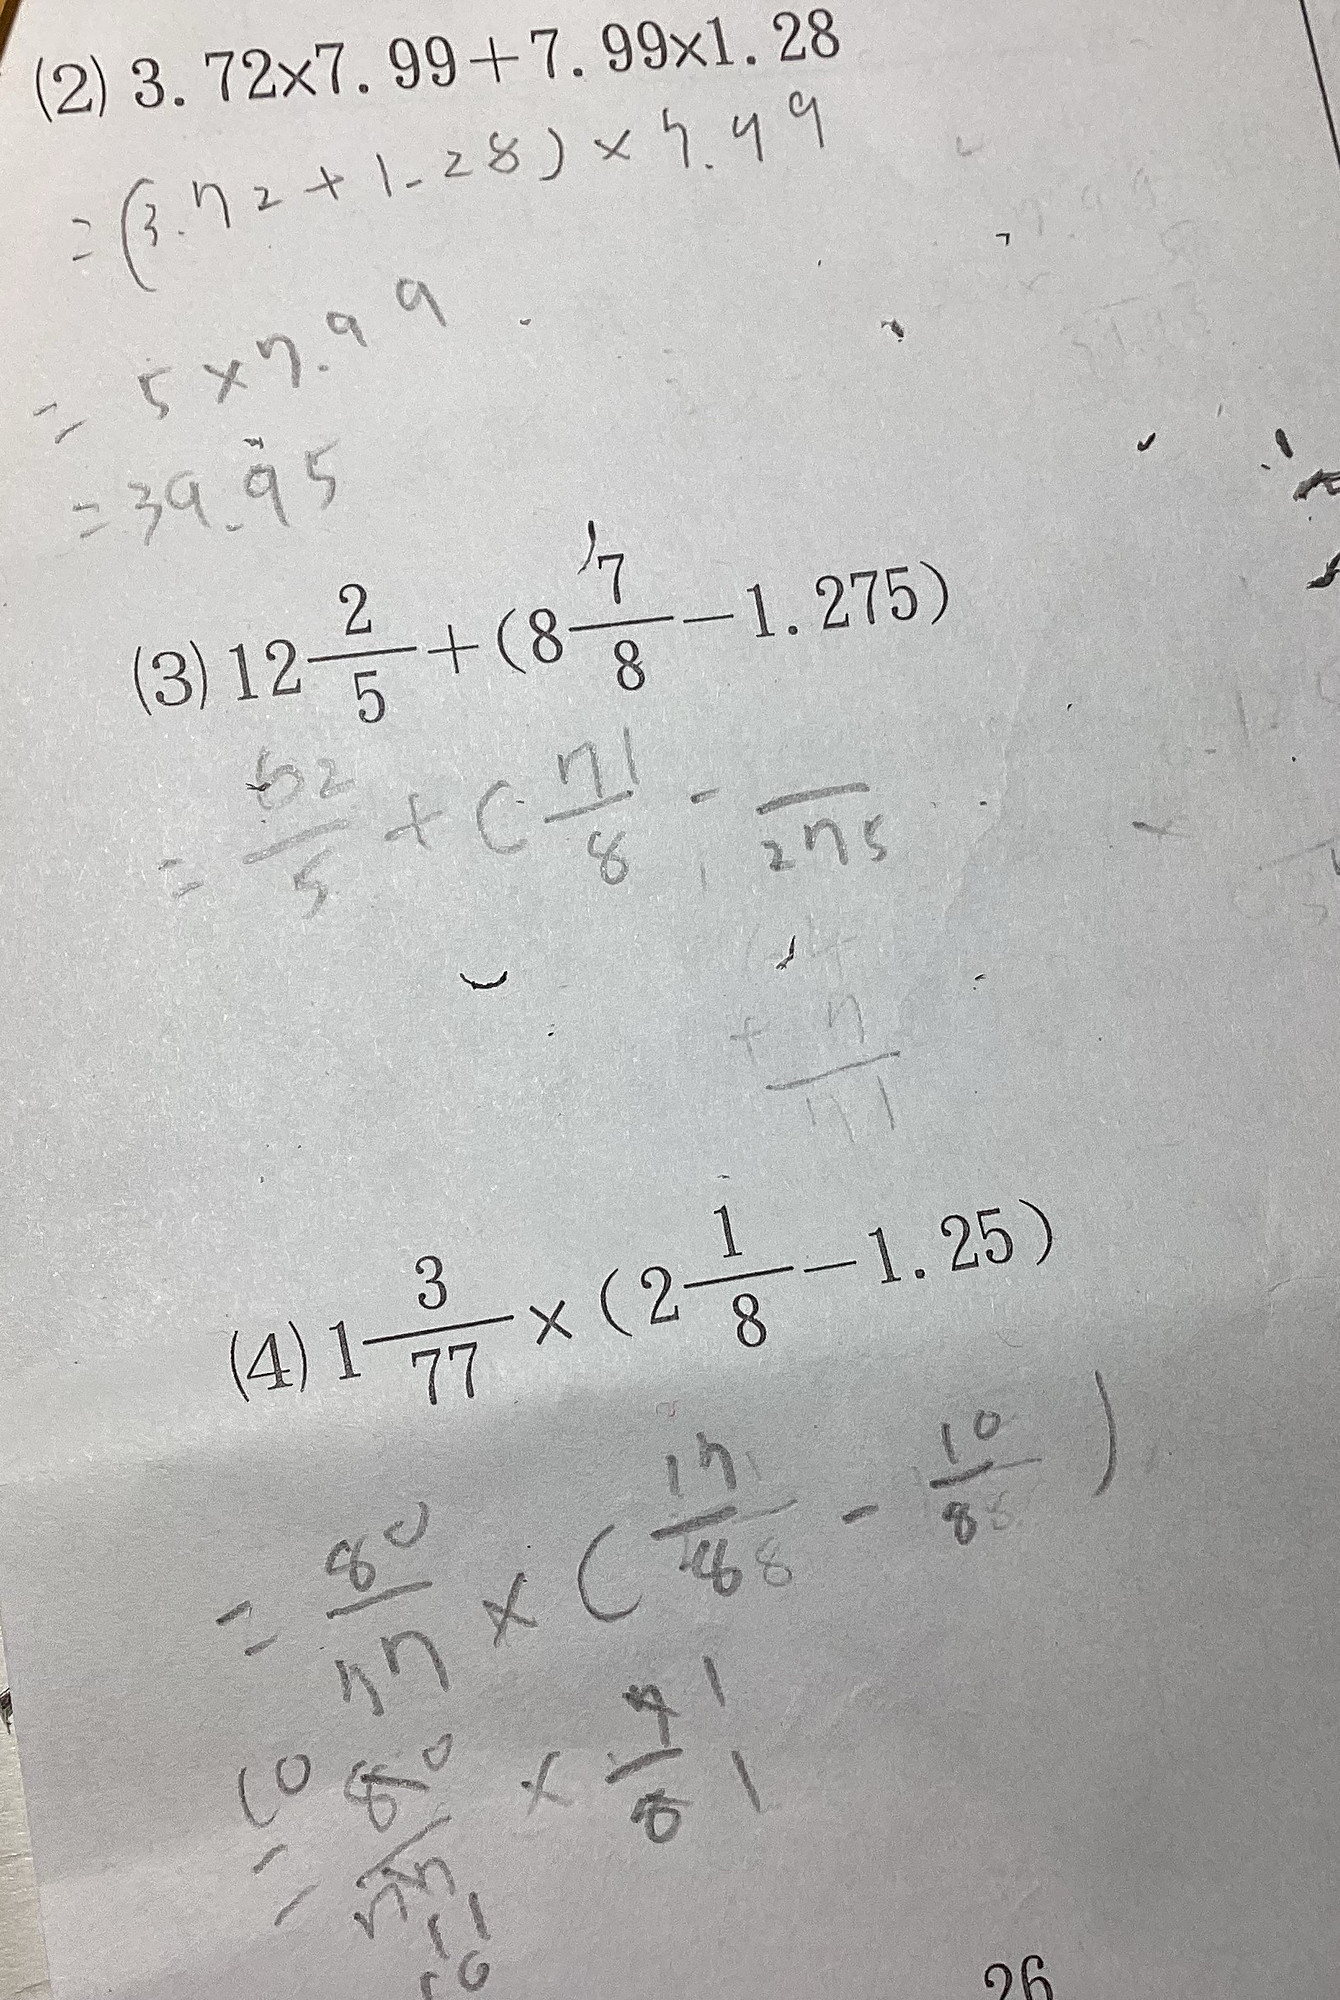 (2) 3.72×7.99+7.99×1.28
=(3.72+1.28)×7.99
=5×7.99
=39.95
(3) 12 2/5+(8 7/8−1.275)
=62/5+(71/8-/275
+7
71
(4) 1 3/77×(2 1/8−1.25)
=80/77×(17/8-10/8)
=80/77×7/8
10 1
11 1
10
26